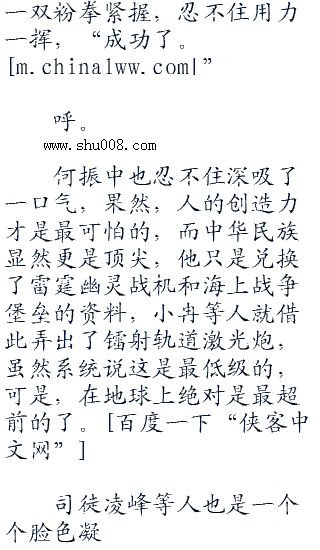 一双粉拳紧握，忍不住用力
一挥，“成功了。
[m.chinalww.com|”
呼。
www.shu008.com
何振中也忍不住深吸了
一口气，果然，人的创造力
才是最可怕的，而中华民族
显然更是顶尖，他只是兑换
了雷霆幽灵战机和海上战争
堡垒的资料，小冉等人就借
此弄出了镭射轨道激光炮，
虽然系统说这是最低级的，
可是，在地球上绝对是最超
前的了。[百度一下“侠客中
文网”]
司徒凌峰等人也是一个
个脸色凝